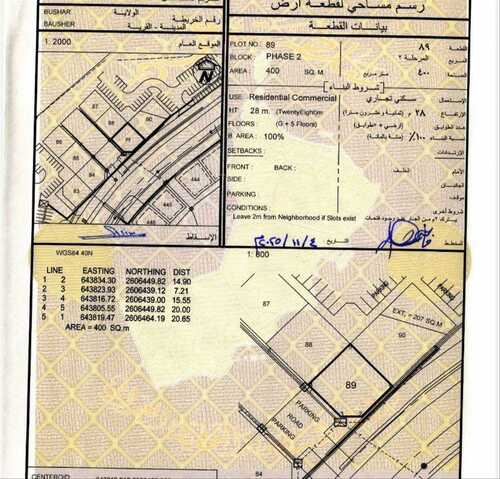 رسم مساحي لقطعة أرض
BUSHAR
الولاية
BAUSHER
المدينة - القرية
رقم الخريطة
1: 2000
الموقع العام
بيانات القطعة
PLOT NO: 89
٨٩ القطعة
BLOCK: PHASE 2
المرحلة ٢
AREA: 400 SQ. M
٤٠٠ متر مربع المساحة
شروط البناء
USE: Residential Commercial
سكني تجاري الاستعمال
HT: 28 m. (TwentyEight)m
٢٨ م (ثمانية وعشرون مترا) الارتفاع
FLOORS: (G + 5.Floors)
(أرضي + ٥ طوابق) عدد الطوابق
B AREA: 100%
١٠٠٪ (مائة بالمائة)
SETBACKS:
الارتدادات
FRONT: BACK:
أمام خلف
SIDE:
الجانبان
PARKING:
المواقف
CONDITIONS:
شروط أخرى
Leave 2m from Neighborhood if Slots exist
الإسقاط
التاريخ
٢٠٢٥/١١/٤
المخطط
WGS84 40N
1: 800
LINE EASTING NORTHING DIST
1 2 643834.30 2606449.82 14.90
2 3 643823.93 2606439.12 7.21
3 4 643816.72 2606439.00 15.55
4 5 643805.55 2606449.82 20.00
5 1 643819.47 2606464.19 20.65
AREA = 400 SQ.m
87
88
89
90
EXT. = 207 SQ.M
PARKING
PARKING
PARKING
ROAD
PARKING
84
CENTEROID